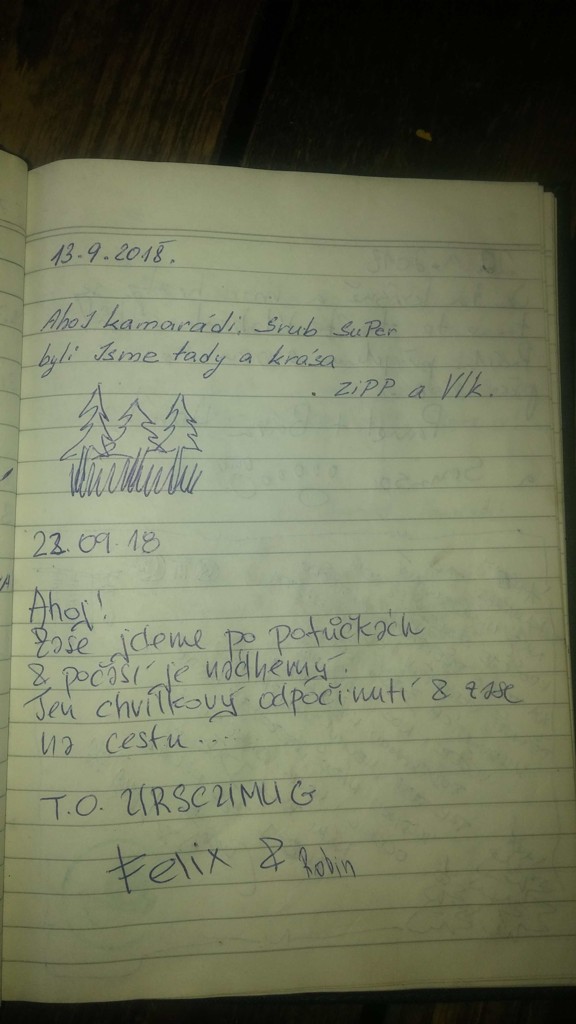 13.9.2018.
Ahoj kamarádi. Srub SuPer
byli Jsme tady a krása
. ZiPP a Vlk.
23.09.18
Ahoj!
Zaše jdeme po potůčkách
& počaší je nádherný.
Jen chvilkový odpočinutí & zase
na cestu....
T.O.
Felix & Robin